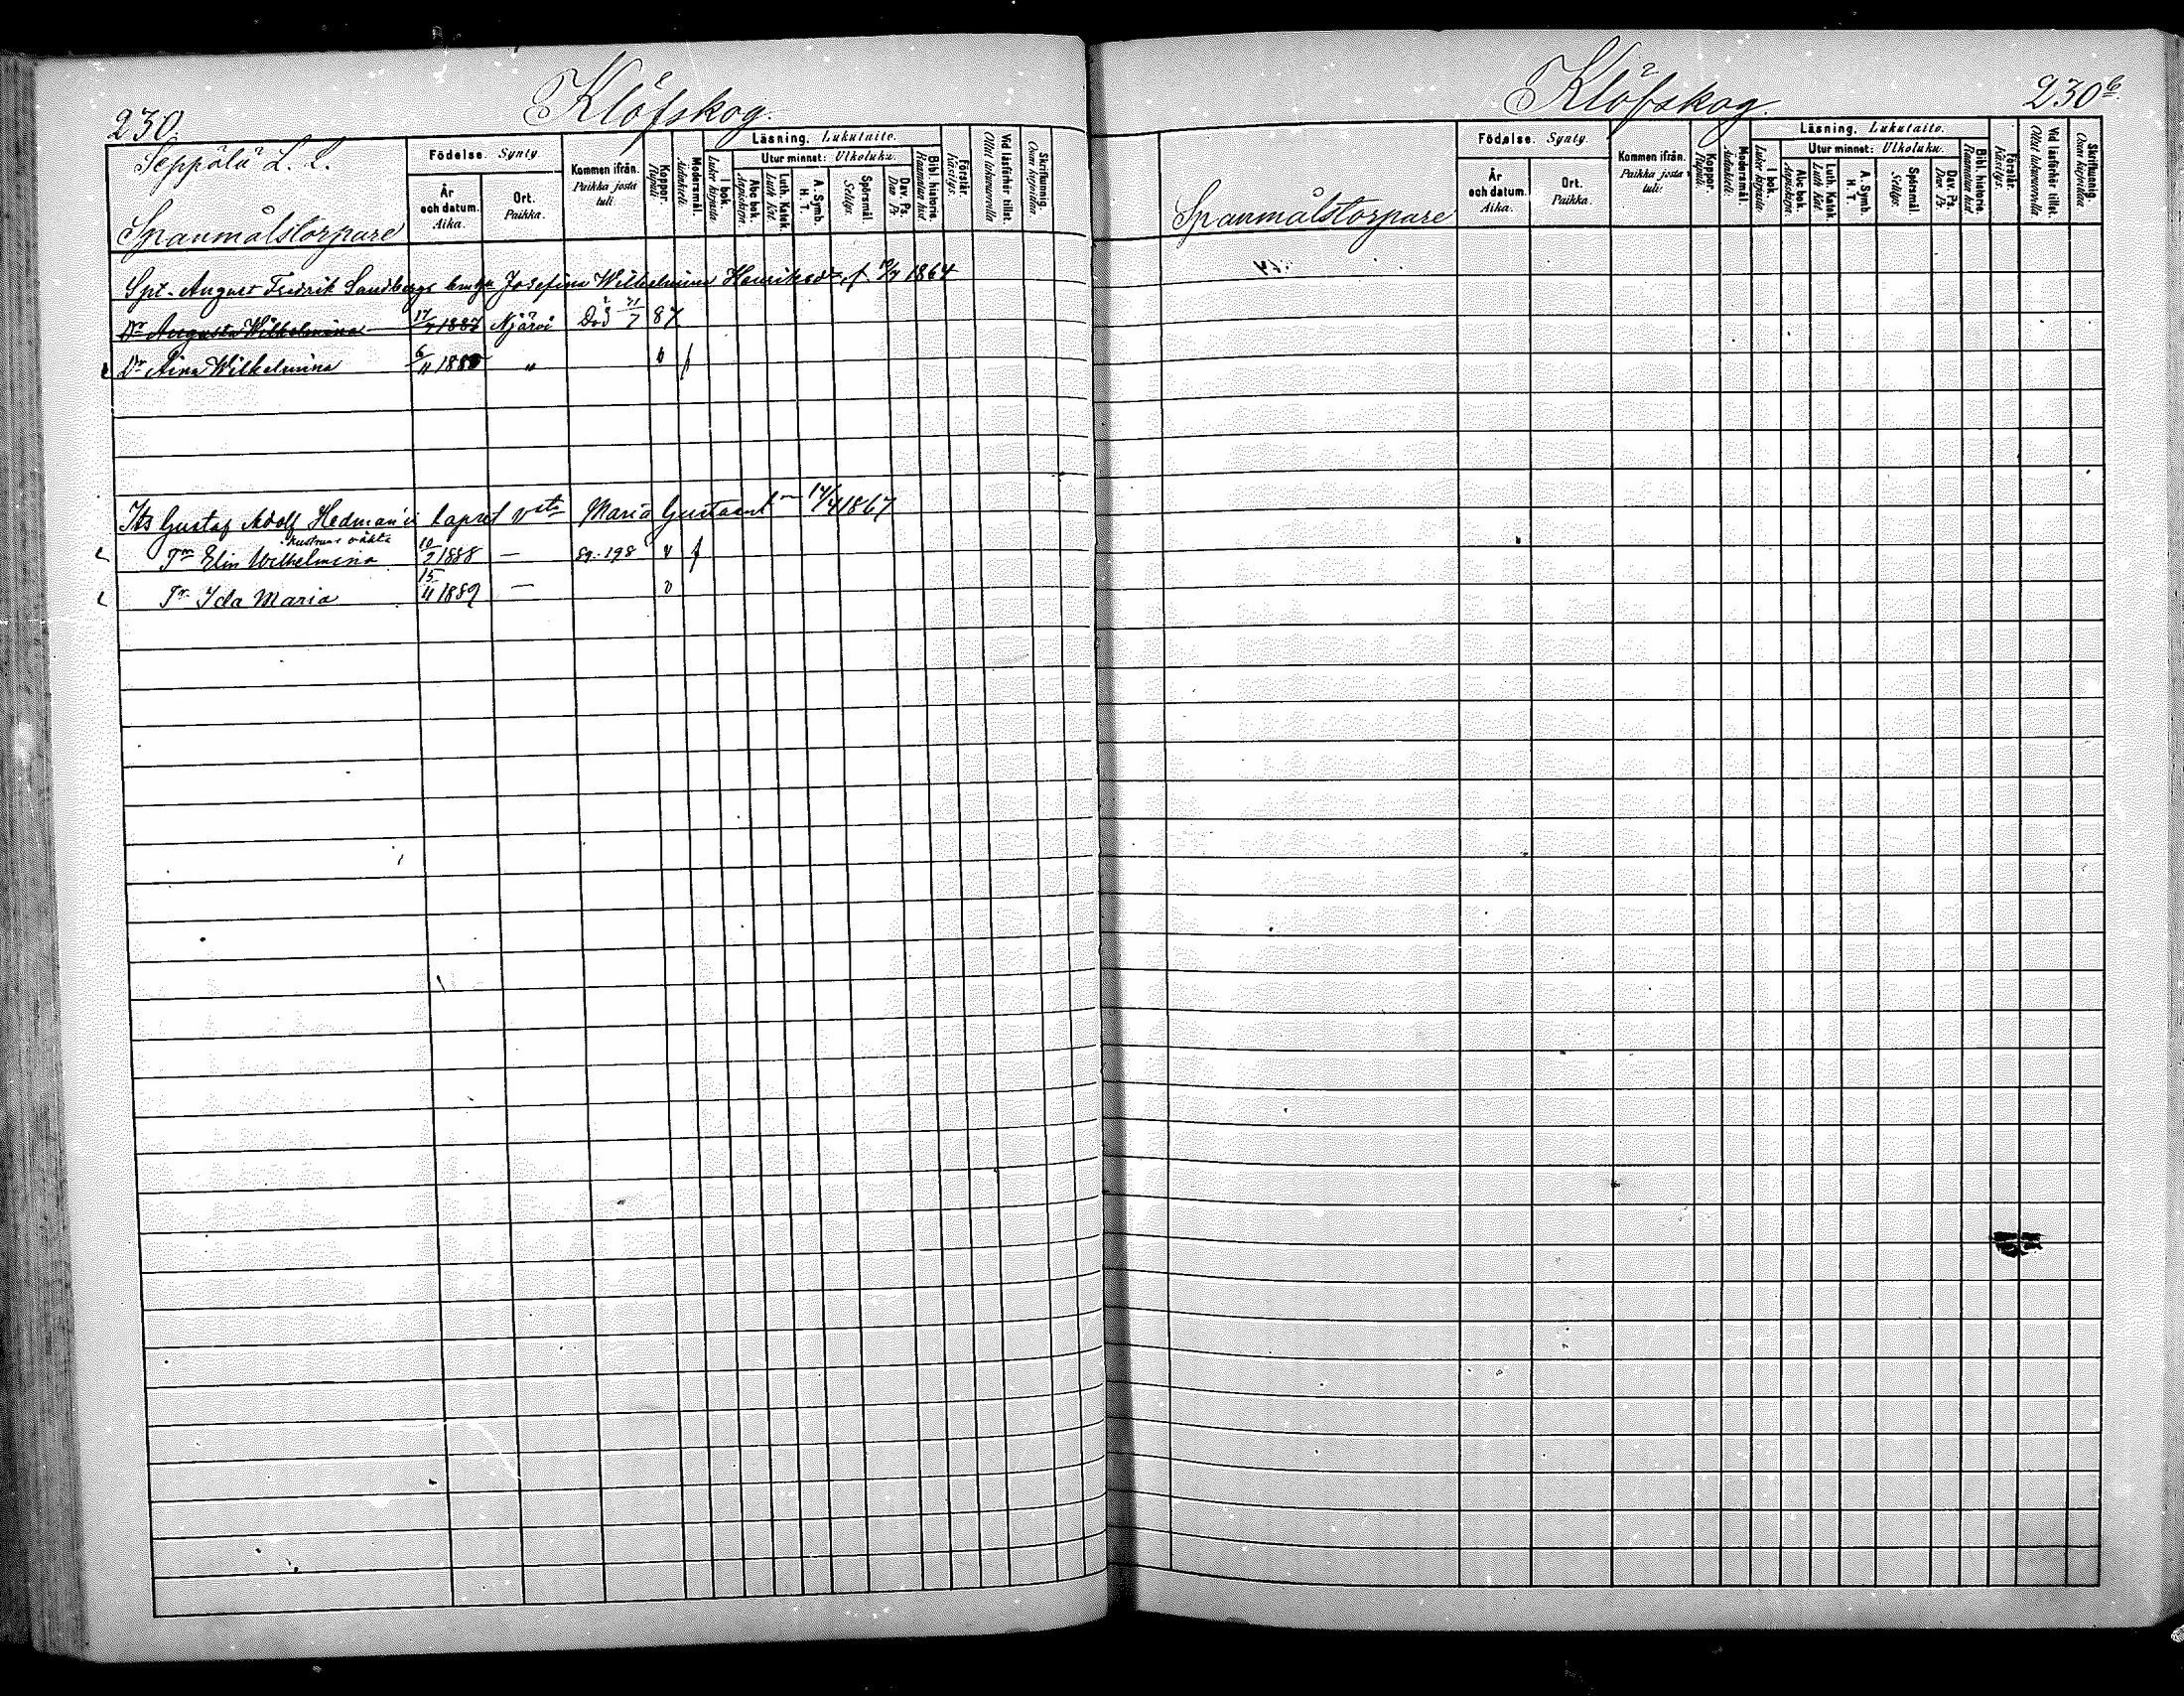 230.
Klöfskog.
Seppälä L. L.
Spanmålstorpare
Födelse. Synty.
År och datum. Aika.
Ort. Paikka.
Kommen ifrån. Paikka josta tuli
Koppor. Rupuli.
Modersmål. Äidinkieli.
Läsning. Lukutaito.
I bok. Lukee kirjasta.
Utur minnet: Ulkoluku.
Abc bok. Aapiskirja.
Luth. Katek. Luth Kat.
A. Symb. H. T.
Spörsmål. Selitys.
Dav. Ps. Dav. Ps.
Bibl. historie. Raamatun hist.
Förstår. Käsitys.
Vid läsförhör tillst. Ollut lukuvuorolla
Skrifkunnig. Osaa kirjoittaa.
Spt. August Fredrik Sandbergs Josefina Wilhelmina Henriksdr f. 1864
Dr Augusta Wilhelmina 17/7 1887 Njärvi Död 21/7 87
Dr Aina Wilhelmina 6/11 1888 " v f
Its Gustaf Adolf Hedman's Maria 17/4 1867
Dr Elin Wilhelmina 10/2 1888 — 198 v f
Dr Ida Maria 15/11 1889 — v
Klöfskog.
230b.
Spanmålstorpare
Födelse. Synty.
År och datum. Aika.
Ort. Paikka.
Kommen ifrån. Paikka josta tuli:
Koppor. Rupuli.
Modersmål. Äidinkieli.
Läsning. Lukutaito.
I bok. Lukee kirjasta.
Utur minnet: Ulkoluku.
Abc bok. Aapiskirja.
Luth. Katek. Luth Kat.
A. Symb. H. T.
Spörsmål. Selitys.
Dav. Ps. Dav. Ps.
Bibl. historie. Raamatun hist.
Förstår. Käsitys.
Vid läsförhör tillst. Ollut lukuvuorolla
Skrifkunnig. Osaa kirjoittaa.